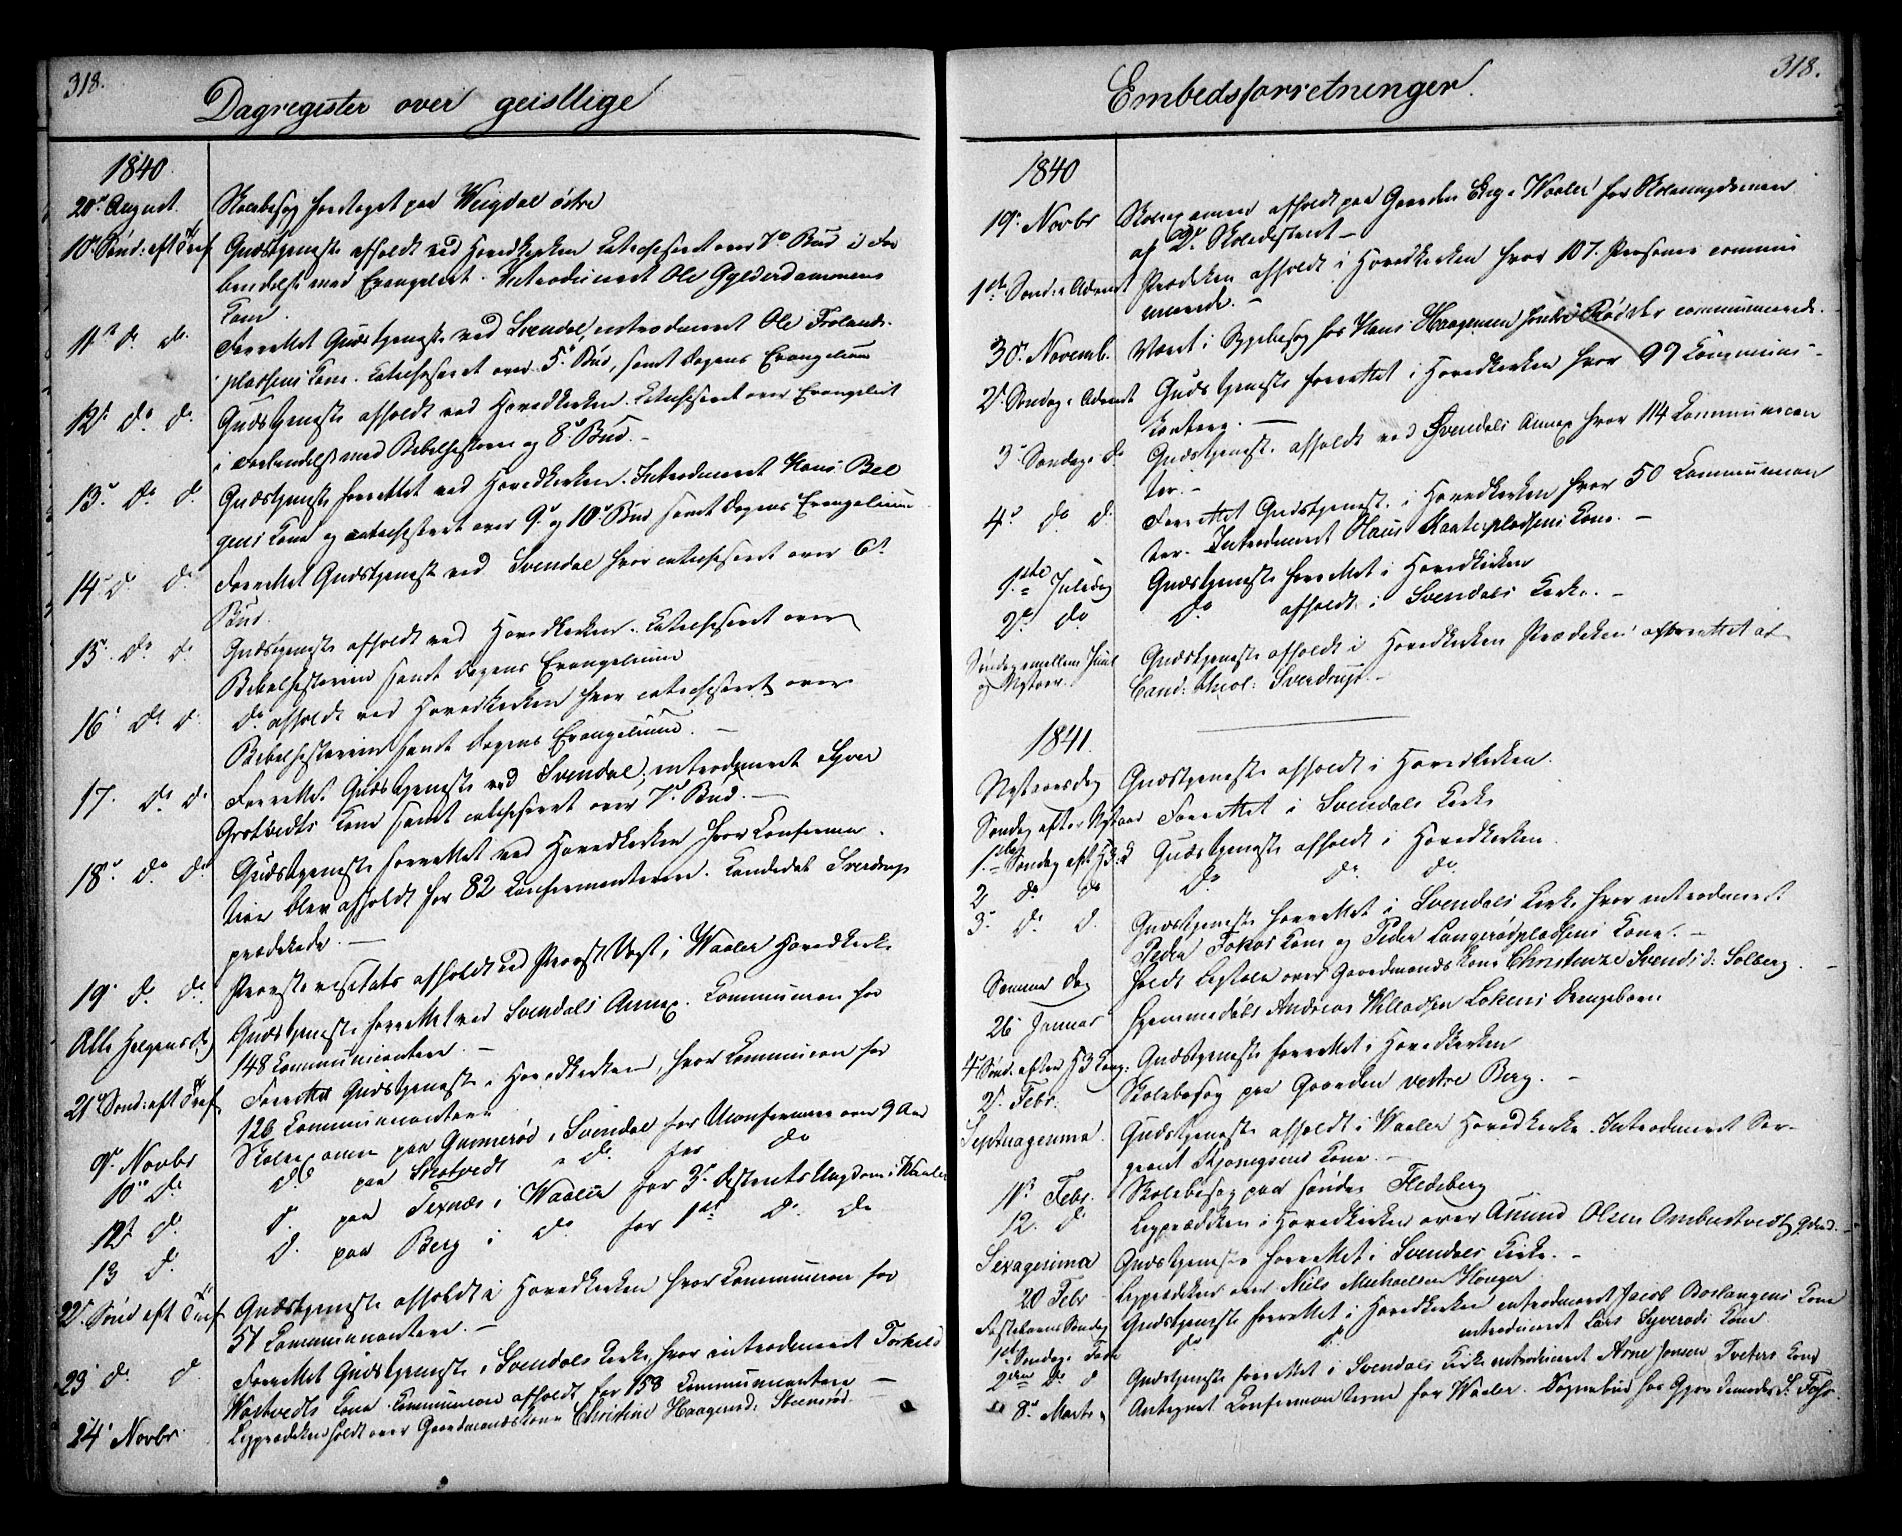 318.
Dagregister over geistlige
1840.
20de August. Skolebesøg foretaget paa Weigdal østre
10de Sønd: eft Tref Gudstjeneste afholdt ved Hovedkirken Catechiseret over 7de Bud i For
bindelse med Evangeliet. Introduceret Ole Gylderdammens
Kone.
11te do do. Forrettet Gudstjeneste ved Svendal, introduceret Ole Frolands-
pladsens Kone. Catechiseret over 5te Bud, samt Dagens Evangelium
12te do do. Gudstjeneste afholdt ved Hovedkirken. Catechiseret over Evangeliet
i Forbindelse med Bibelhistorien og 8de Bud. -
13de do do. Gudstjeneste forrettet ved Hovedkirken. Introduceret Hans Bel
gens Kone og catechiseret over 9de og 10de Bud samt Dagens Evangelium.
14de do do. Forrettet Gudstjeneste ved Svendal hvor catechiseret over 6te
Bud.
15de do do. Gudstjeneste afholdt ved Hovedkirken. Catechiseret over
Bibelhistorien samt Dagens Evangelium
16de do do. do afholdt ved Hovedkirken hvor catechiseret over
Bibelhistorien samt Dagens Evangelium. -
17. do do Forrettet Gudstjeneste ved Svendal, introduceret Syver
Grotvedts Kone samt catechiseret over 7de Bud. -
18de do do Gudstjeneste forrettet ved Hovedkirken hvor Confirma-
tion blev afholdt for 82 Confirmantere. Candidat Sverdrup
prædikede. -
19de do do. Provstevisitats afholdt ved Provst Vogt i Waaler Hovedkirke
Alle Helgens D. Gudstjeneste forrettet ved Svendals Annex. Communion for
148 Communicantere. -
21de Sønd: eft Tref Forrettet Gudstjeneste i Hovedkirken, hvor Communion for
126 Communicantere
9de Novbr Skoleexamen paa Gunnerød i Svendal for Uconfirmerede over 9 Aar
10de do do. paa Skotvedt " do. for do
12te do do. paa Texnæs i Waaler for 3die Districts Ungdom i Waaler
13 do. do. paa Berg i do for 1ste do. do
22de Sønd eft Tref Gudstjeneste afholdt i Hovedkirken hvor Communion for
51 Communicantere. -
23de do do Forrettet Gudstjeneste i Svendals Kirke, hvor introduceret Torkild
Wastvedts Kone. Communion afholdt for 158 Communicantere -
24de Novbr. Ligprædiken holdt over Gaardmandskone Christine Haagensd. Steenrød.
Embedsforretninger.
318.
1840
19de Novbr Skoleexamen afholdt paa Gaarden Eeg i Waaler for Skoleungdommen
af 2det Skoledistrict -
1ste Sønd: i Advent Prædiken afholdt i Hovedkirken hvor 107 Personer commu
nicerede. -
30te Novemb. Været i Sygebesøg hos Hans Haagensen søndre Rød der communicerede.
2den Søndag i Advent Gudstjeneste forrettet i Hovedkirken hvor 97 Communi-
canter. -
3de Søndag i do Gudstjeneste afholdt ved Svendals Annex hvor 114 Communican
ter. -
4de do do. Forrettet Gudstjeneste i Hovedkirken hvor 50 Communican
ter. Introduceret Hans Kaatepladsens Kone. -
1ste Juledag Gudstjeneste forrettet i Hovedkirken
2den do do afholdt i Svendals Kirke. -
Søndag mellem Juul Gudstjeneste afholdt i Hovedkirken Prædiken forrettet af
og Nytaar. Cand: theol: Sverdrup. -
1841.
Nytaarsdag Gudstjeneste afholdt i Hovedkirken.
Søndag efter Nytaar Forrettet i Svendals Kirke
1ste Søndag eft H3K Gudstjeneste afholdt i Hovedkirken.
2 do do do. do. do.
3de do. d. Gudstjeneste forrettet i Svendals Kirke hvor introduceret
Peder Tokas Kone og Peder Langerødpladsens Kone. -
Samme Dag Holdt Ligtale over Gaardmandskone Christenze Svendsd. Solberg. -
26de Januar Hjemmedøbt Andreas Willadsen Løkens Drengebarn
4de Sønd. efter H3Kong: Gudstjeneste forrettet i Hovedkirken
2den Febr. Skolebesøg paa Gaarden vestre Berg. -
Septuagesima. Gudstjeneste afholdt i Waaler Hovedkirke. Introduceret Ser-
geant Kjonigsens Kone. -
11te Febr. Skolebesøg paa søndre Fledsberg
12. do Ligprædiken i Hovedkirken over Amund Olsen Ombustvedt, Gdmd.
Sexagesima Gudstjeneste forrettet i Svendals Kirke. -
20 Febr Ligprædiken over Niels Michaelsen Houger
Fastelavns Søndag Gudstjeneste forrettet i Hovedkirken introduceret Jacob Borlangens Kone
1ste Søndag i Faste do do introduceret Lars Syverøds Kone
2den do d Gudstjeneste forrettet i Svendals Kirke introduceret Arne Jensen Tveters Kone
8de Marts Antegnet Confirmanterne for Waaler. Sognebud hos Gjordemoder S. Foss.